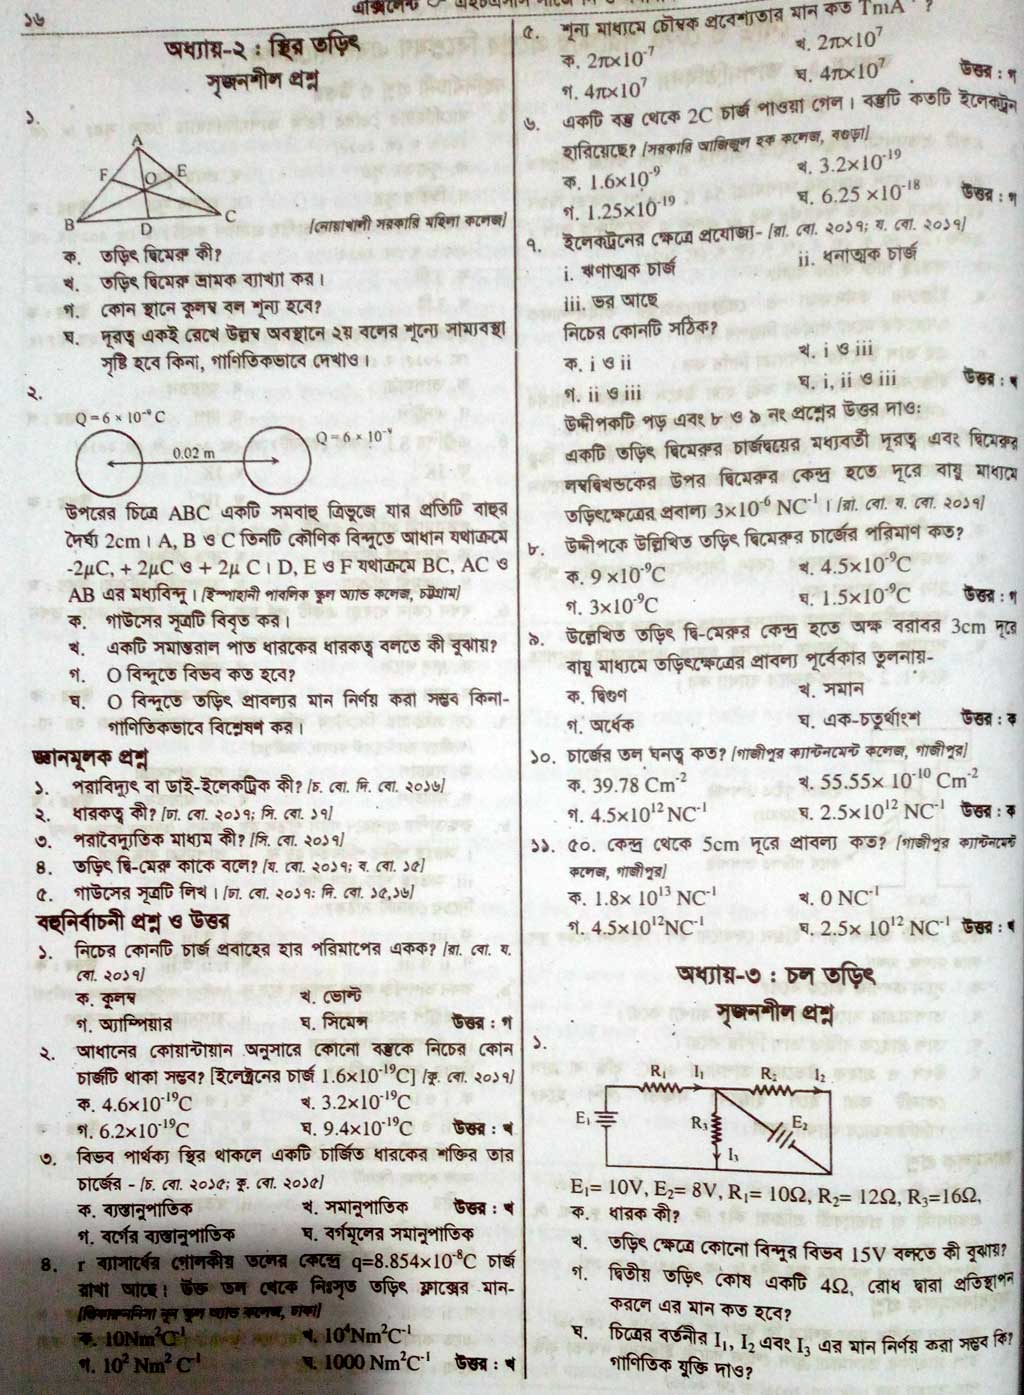 ১৬
অধ্যায়-২ : স্থির তড়িৎ
সৃজনশীল প্রশ্ন
১.
A
F
E
O
B
D
C
/নোয়াখালী সরকারি মহিলা কলেজ/
ক. তড়িৎ দ্বিমেরু কী?
খ. তড়িৎ দ্বিমেরু ভ্রামক ব্যাখ্যা কর।
গ. কোন স্থানে কুলম্ব বল শূন্য হবে?
ঘ. দূরত্ব একই রেখে উল্লম্ব অবস্থানে ২য় বলের শূন্যে সাম্যাবস্থা
সৃষ্টি হবে কিনা, গাণিতিকভাবে দেখাও।
২.
Q = 6 × 10⁻⁹ C
Q = 6 × 10⁻⁹
0.02 m
উপরের চিত্রে ABC একটি সমবাহু ত্রিভুজে যার প্রতিটি বাহুর
দৈর্ঘ্য 2cm। A, B ও C তিনটি কৌণিক বিন্দুতে আধান যথাক্রমে
-2μC, + 2μC ও + 2μ C। D, E ও F যথাক্রমে BC, AC ও
AB এর মধ্যবিন্দু। /ইস্পাহানী পাবলিক স্কুল অ্যান্ড কলেজ, চট্টগ্রাম/
ক. গাউসের সূত্রটি বিবৃত কর।
খ. একটি সমান্তরাল পাত ধারকের ধারকত্ব বলতে কী বুঝায়?
গ. O বিন্দুতে বিভব কত হবে?
ঘ. O বিন্দুতে তড়িৎ প্রাবল্যের মান নির্ণয় করা সম্ভব কিনা-
গাণিতিকভাবে বিশ্লেষণ কর।
জ্ঞানমূলক প্রশ্ন
১. পরাবিদ্যুৎ বা ডাই-ইলেকট্রিক কী? /চ. বো. দি. বো. ২০১৬/
২. ধারকত্ব কী? /ঢা. বো. ২০১৭; সি. বো. ১৭/
৩. পরাবৈদ্যুতিক মাধ্যম কী? /সি. বো. ২০১৭/
৪. তড়িৎ দ্বি-মেরু কাকে বলে? /য. বো. ২০১৭; ব. বো. ১৫/
৫. গাউসের সূত্রটি লিখ। /ঢা. বো. ২০১৭; দি. বো. ১৫,১৬/
বহুনির্বাচনী প্রশ্ন ও উত্তর
১. নিচের কোনটি চার্জ প্রবাহের হার পরিমাপের একক? /রা. বো. য.
বো. ২০১৭/
ক. কুলম্ব খ. ভোল্ট
গ. অ্যাম্পিয়ার ঘ. সিমেন্স উত্তর : গ
২. আধানের কোয়ান্টায়ান অনুসারে কোনো বস্তুকে নিচের কোন
চার্জটি থাকা সম্ভব? [ইলেক্ট্রনের চার্জ 1.6×10⁻¹⁹C] /কু. বো. ২০১৭/
ক. 4.6×10⁻¹⁹C খ. 3.2×10⁻¹⁹C
গ. 6.2×10⁻¹⁹C ঘ. 9.4×10⁻¹⁹C উত্তর : খ
৩. বিভব পার্থক্য স্থির থাকলে একটি চার্জিত ধারকের শক্তির তার
চার্জের - /চ. বো. ২০১৫; কু. বো. ২০১৫/
ক. ব্যস্তানুপাতিক খ. সমানুপাতিক উত্তর : খ
গ. বর্গের ব্যস্তানুপাতিক ঘ. বর্গমূলের সমানুপাতিক
৪. r ব্যাসার্ধের গোলকীয় তলের কেন্দ্রে q=8.854×10⁻⁸C চার্জ
রাখা আছে। উক্ত তল থেকে নিঃসৃত তড়িৎ ফ্লাক্সের মান-
/ভিকারুননিসা নূন স্কুল অ্যান্ড কলেজ, ঢাকা/
ক. 10Nm²C⁻¹ খ. 10⁴Nm²C⁻¹
গ. 10² Nm² C⁻¹ ঘ. 1000 Nm²C⁻¹ উত্তর : খ
৫. শূন্য মাধ্যমে চৌম্বক প্রবেশ্যতার মান কত TmA ?
ক. 2π×10⁻⁷ খ. 2π×10⁷
গ. 4π×10⁷ ঘ. 4π×10⁷ উত্তর : গ
৬. একটি বস্তু থেকে 2C চার্জ পাওয়া গেল। বস্তুটি কতটি ইলেকট্রন
হারিয়েছে? /সরকারি আজিজুল হক কলেজ, বগুড়া/
ক. 1.6×10⁻⁹ খ. 3.2×10⁻¹⁹
গ. 1.25×10⁻¹⁹ ঘ. 6.25 ×10⁻¹⁸ উত্তর : গ
৭. ইলেকট্রনের ক্ষেত্রে প্রযোজ্য- /রা. বো. ২০১৭; য. বো. ২০১৭/
i. ঋণাত্মক চার্জ ii. ধনাত্মক চার্জ
iii. ভর আছে
নিচের কোনটি সঠিক?
ক. i ও ii খ. i ও iii
গ. ii ও iii ঘ. i, ii ও iii উত্তর : খ
উদ্দীপকটি পড় এবং ৮ ও ৯ নং প্রশ্নের উত্তর দাও:
একটি তড়িৎ দ্বিমেরুর চার্জদ্বয়ের মধ্যবর্তী দূরত্ব এবং দ্বিমেরুর
লম্বদ্বিখন্ডকের উপর দ্বিমেরুর কেন্দ্র হতে দূরে বায়ু মাধ্যমে
তড়িৎক্ষেত্রের প্রবাল্য 3×10⁻⁶ NC⁻¹। /রা. বো. য. বো. ২০১৭/
৮. উদ্দীপকে উল্লিখিত তড়িৎ দ্বিমেরুর চার্জের পরিমাণ কত?
ক. 9 ×10⁻⁹C খ. 4.5×10⁻⁹C
গ. 3×10⁻⁹C ঘ. 1.5×10⁻⁹C উত্তর : গ
৯. উল্লেখিত তড়িৎ দ্বি-মেরুর কেন্দ্র হতে অক্ষ বরাবর 3cm দূরে
বায়ু মাধ্যমে তড়িৎক্ষেত্রের প্রাবল্য পূর্বেকার তুলনায়-
ক. দ্বিগুণ খ. সমান
গ. অর্ধেক ঘ. এক-চতুর্থাংশ উত্তর : ক
১০. চার্জের তল ঘনত্ব কত? /গাজীপুর ক্যান্টনমেন্ট কলেজ, গাজীপুর/
ক. 39.78 Cm⁻² খ. 55.55× 10⁻¹⁰ Cm⁻²
গ. 4.5×10¹² NC⁻¹ ঘ. 2.5×10¹² NC⁻¹ উত্তর : ক
১১. ৫০. কেন্দ্র থেকে 5cm দূরে প্রাবল্য কত? /গাজীপুর ক্যান্টনমেন্ট
কলেজ, গাজীপুর/
ক. 1.8× 10¹³ NC⁻¹ খ. 0 NC⁻¹
গ. 4.5×10¹²NC⁻¹ ঘ. 2.5× 10¹² NC⁻¹ উত্তর : খ
অধ্যায়-৩ : চল তড়িৎ
সৃজনশীল প্রশ্ন
১.
R₁ I₁ R₂ I₂
E₁ R₃ E₂
I₃
E₁= 10V, E₂= 8V, R₁= 10Ω, R₂= 12Ω, R₃=16Ω,
ক. ধারক কী?
খ. তড়িৎ ক্ষেত্রে কোনো বিন্দুর বিভব 15V বলতে কী বুঝায়?
গ. দ্বিতীয় তড়িৎ কোষ একটি 4Ω, রোধ দ্বারা প্রতিস্থাপন
করলে এর মান কত হবে?
ঘ. চিত্রের বর্তনীর I₁, I₂ এবং I₃ এর মান নির্ণয় করা সম্ভব কি?
গাণিতিক যুক্তি দাও?